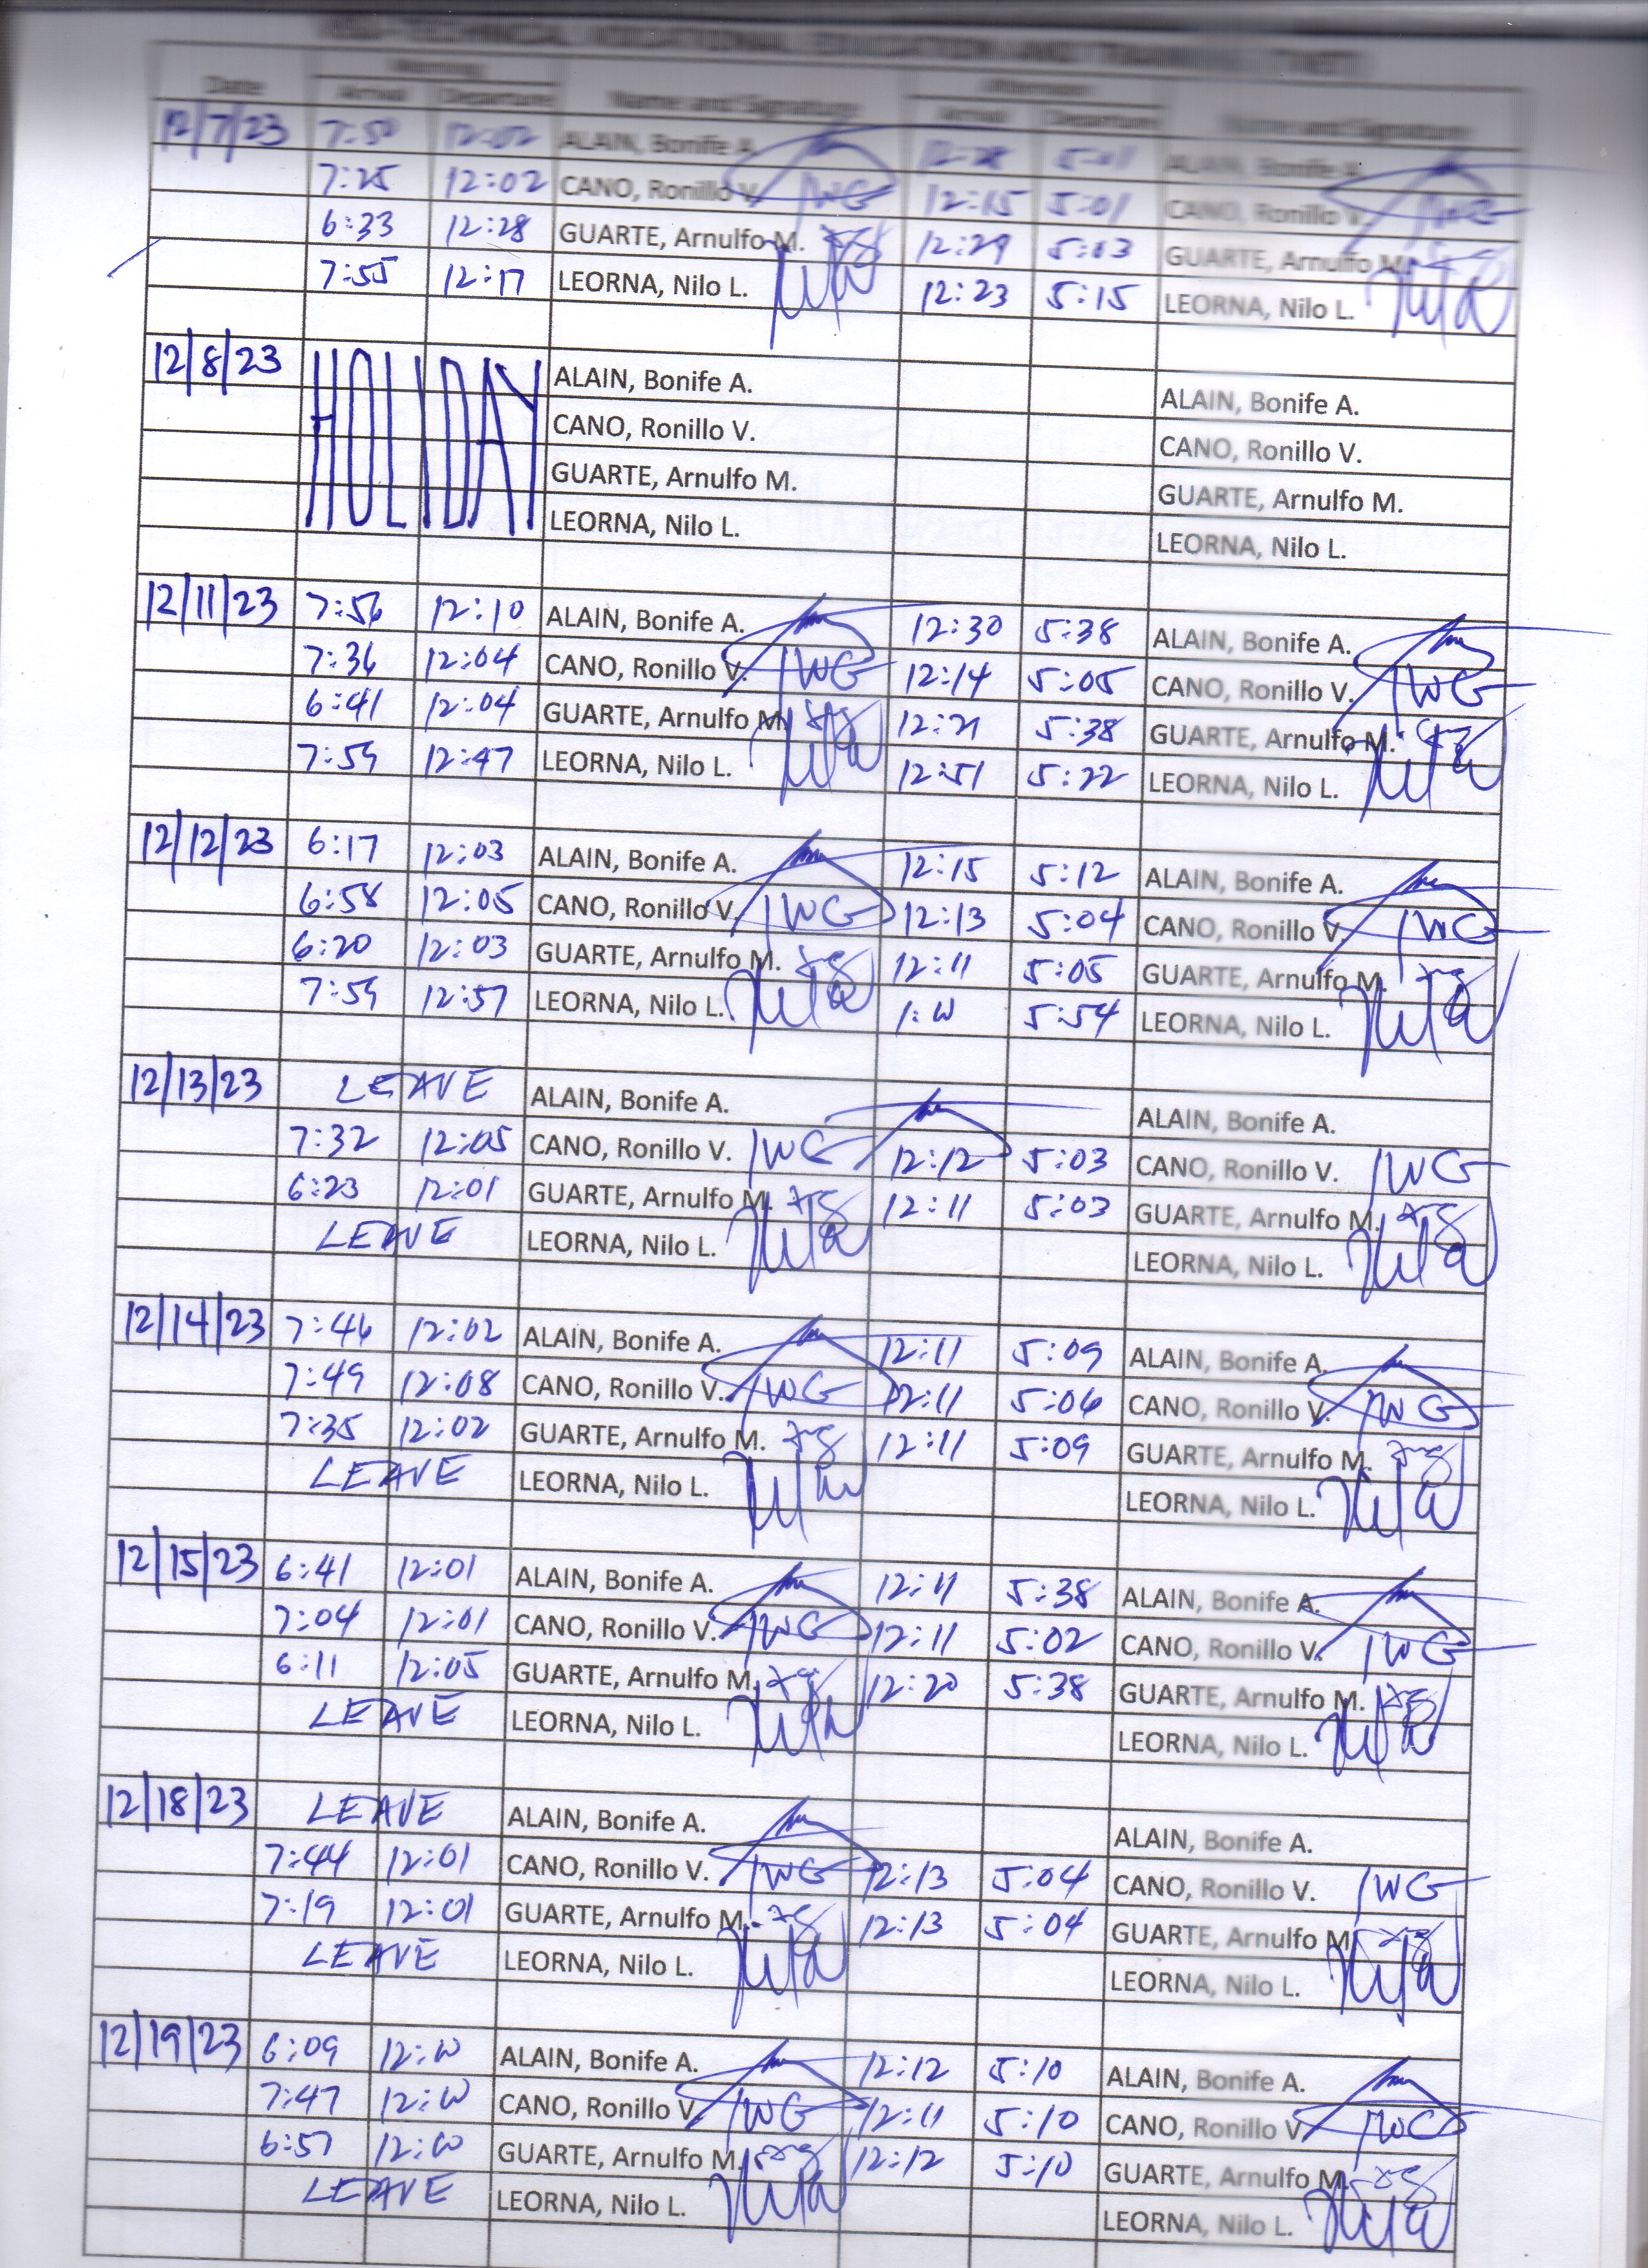 TECHNICAL VOCATIONAL EDUCATION AND TRAINING (TVET)
Morning Afternoon
Date Arrival Departure Name and Signature Arrival Departure Name and Signature
12/7/23 12:02 ALAIN, Bonife A. 12:28 5:01 ALAIN, Bonife A.
7:25 12:02 CANO, Ronillo V. 12:15 5:01 CANO, Ronillo V.
6:33 12:28 GUARTE, Arnulfo M. 12:29 5:03 GUARTE, Arnulfo M.
7:55 12:17 LEORNA, Nilo L. 12:23 5:15 LEORNA, Nilo L.
12/8/23 HOLIDAY ALAIN, Bonife A. ALAIN, Bonife A.
CANO, Ronillo V. CANO, Ronillo V.
GUARTE, Arnulfo M. GUARTE, Arnulfo M.
LEORNA, Nilo L. LEORNA, Nilo L.
12/11/23 7:56 12:10 ALAIN, Bonife A. 12:30 5:38 ALAIN, Bonife A.
7:36 12:04 CANO, Ronillo V. 12:14 5:05 CANO, Ronillo V.
6:41 12:04 GUARTE, Arnulfo M. 12:21 5:38 GUARTE, Arnulfo M.
7:59 12:47 LEORNA, Nilo L. 12:51 5:22 LEORNA, Nilo L.
12/12/23 6:17 12:03 ALAIN, Bonife A. 12:15 5:12 ALAIN, Bonife A.
6:58 12:05 CANO, Ronillo V. 12:13 5:04 CANO, Ronillo V.
6:20 12:03 GUARTE, Arnulfo M. 12:11 5:05 GUARTE, Arnulfo M.
7:59 12:57 LEORNA, Nilo L. 1:00 5:54 LEORNA, Nilo L.
12/13/23 LEAVE ALAIN, Bonife A. ALAIN, Bonife A.
7:32 12:05 CANO, Ronillo V. 12:12 5:03 CANO, Ronillo V.
6:23 12:01 GUARTE, Arnulfo M. 12:11 5:03 GUARTE, Arnulfo M.
LEAVE LEORNA, Nilo L. LEORNA, Nilo L.
12/14/23 7:46 12:02 ALAIN, Bonife A. 12:11 5:09 ALAIN, Bonife A.
7:49 12:08 CANO, Ronillo V. 12:11 5:06 CANO, Ronillo V.
7:35 12:02 GUARTE, Arnulfo M. 12:11 5:09 GUARTE, Arnulfo M.
LEAVE LEORNA, Nilo L. LEORNA, Nilo L.
12/15/23 6:41 12:01 ALAIN, Bonife A. 12:11 5:38 ALAIN, Bonife A.
7:04 12:01 CANO, Ronillo V. 12:11 5:02 CANO, Ronillo V.
6:11 12:05 GUARTE, Arnulfo M. 12:20 5:38 GUARTE, Arnulfo M.
LEAVE LEORNA, Nilo L. LEORNA, Nilo L.
12/18/23 LEAVE ALAIN, Bonife A. ALAIN, Bonife A.
7:44 12:01 CANO, Ronillo V. 12:13 5:04 CANO, Ronillo V.
7:19 12:01 GUARTE, Arnulfo M. 12:13 5:04 GUARTE, Arnulfo M.
LEAVE LEORNA, Nilo L. LEORNA, Nilo L.
12/19/23 6:09 12:00 ALAIN, Bonife A. 12:12 5:10 ALAIN, Bonife A.
7:47 12:00 CANO, Ronillo V. 12:11 5:10 CANO, Ronillo V.
6:57 12:00 GUARTE, Arnulfo M. 12:12 5:10 GUARTE, Arnulfo M.
LEAVE LEORNA, Nilo L. LEORNA, Nilo L.